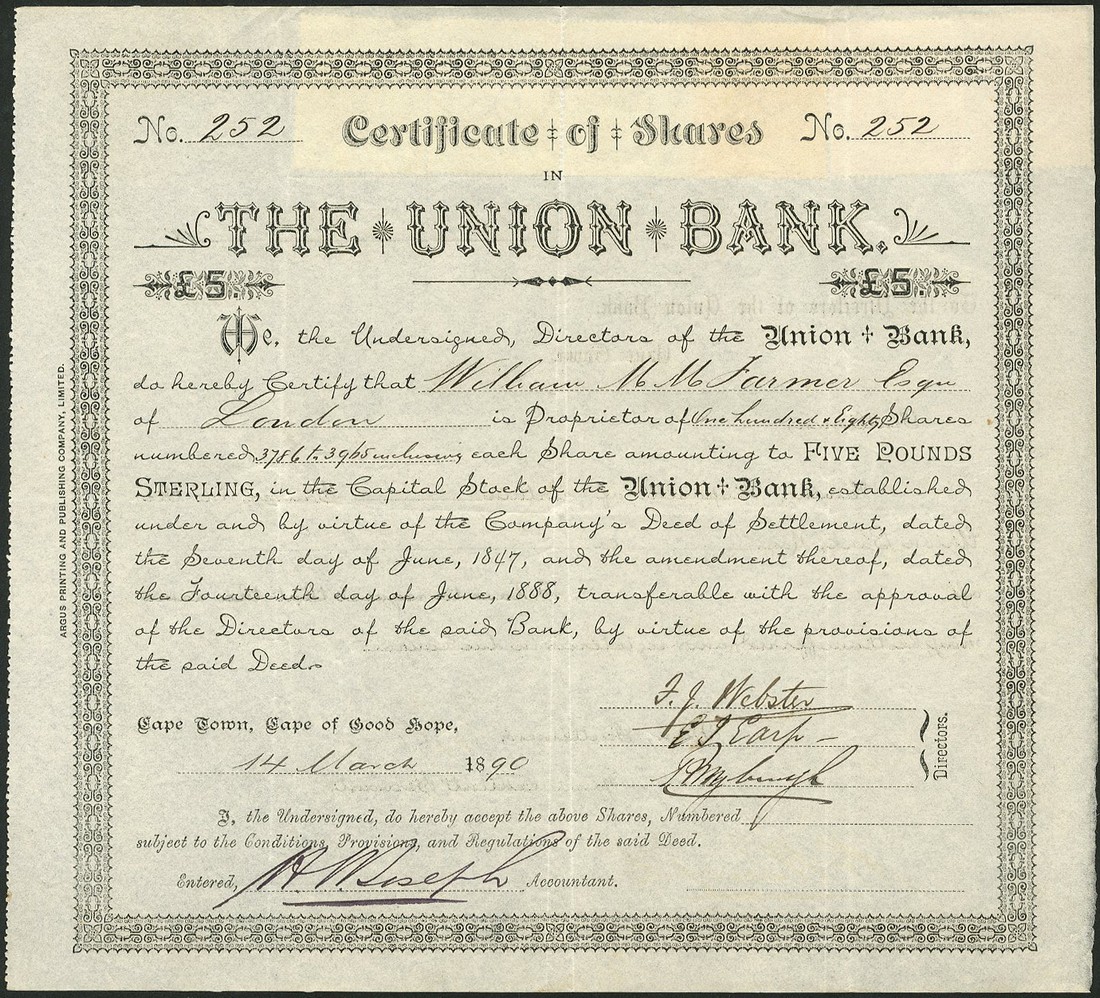 No. 252 Certificate of Shares No. 252
IN
THE UNION BANK.
£5. £5.
We, the Undersigned, Directors of the Union Bank,
do hereby Certify that William M M Farmer Esqu
of London is Proprietor of One hundred & Eighty Shares
numbered 3786 to 3965 inclusive, each Share amounting to FIVE POUNDS
STERLING, in the Capital Stock of the Union Bank, established
under and by virtue of the Company's Deed of Settlement, dated
the Seventh day of June, 1847, and the amendment thereof, dated
the Fourteenth day of June, 1888, transferable with the approval
of the Directors of the said Bank, by virtue of the provisions of
the said Deed.
F. J. Webster
Cape Town, Cape of Good Hope,
E J Earp
14 March 1890
Myburgh
Directors.
I, the Undersigned, do hereby accept the above Shares, Numbered
subject to the Conditions, Provisions, and Regulations of the said Deed.
Entered, Joseph Accountant.
ARGUS PRINTING AND PUBLISHING COMPANY, LIMITED.